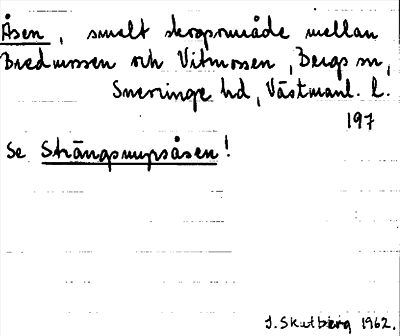 Åsen, smalt skogsområde mellan
Bredmossen och Vitmossen, Bergs sn,
Snevringe hd, Västmanl. l.
197
Se Strängsmyrsåsen!
J. Skutberg 1962.